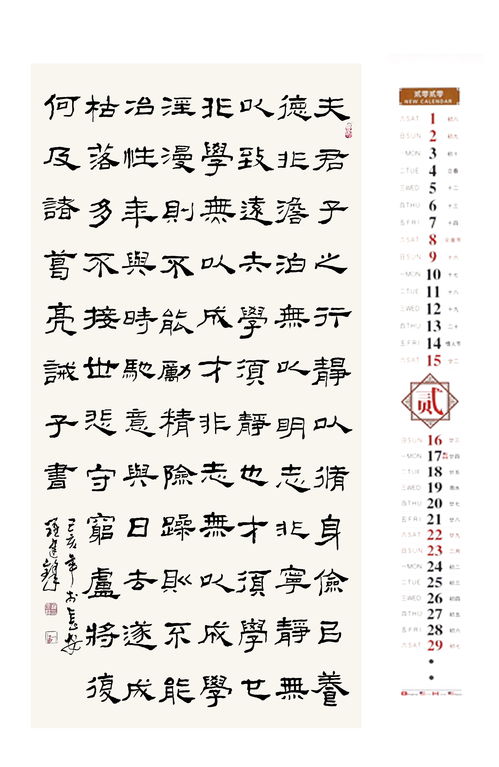 夫君子之行靜以脩身儉㠯養
德非澹泊無以明志非寧靜無
以致遠夫學須靜也才須學也
非學無以成才非志無以成學
淫漫則不能勵精險躁則不能
冶性年與時馳意與日去遂成
枯落多不接世悲守窮盧將復
何及諸葛亮誡子書
己亥年於長安
貳零貳零
NEW CALENDAR
六 SAT 1 初八
日 SUN 2 初九
一 MON 3 初十
二 TUE 4 立春
三 WED 5 十二
四 THU 6 十三
五 FRI 7 十四
六 SAT 8 元宵节
日 SUN 9 十六
一 MON 10 十七
二 TUE 11 十八
三 WED 12 十九
四 THU 13 二十
五 FRI 14 情人节
六 SAT 15 廿二
贰
日 SUN 16 廿三
一 MON 17 廿四
二 TUE 18 廿五
三 WED 19 雨水
四 THU 20 廿七
五 FRI 21 廿八
六 SAT 22 廿九
日 SUN 23 二月
一 MON 24 初二
二 TUE 25 初三
三 WED 26 初四
四 THU 27 初五
五 FRI 28 初六
六 SAT 29 初七